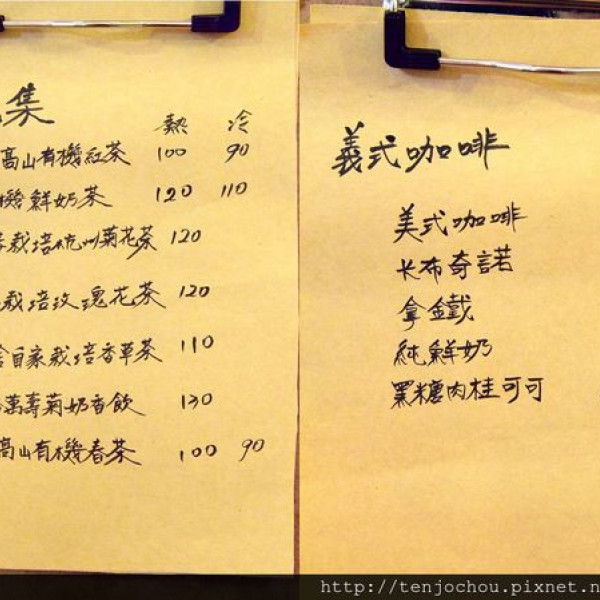 集
熱 冷
高山有機紅茶 100 90
機鮮奶茶 120 110
栽培杭州菊花茶 120
栽培玫瑰花茶 120
自家栽培香草茶 110
萬壽菊奶香飲 130
高山有機春茶 100 90
義式咖啡
美式咖啡
卡布奇諾
拿鐵
純鮮奶
黑糖肉桂可可
http://tenjochou.pixnet.n